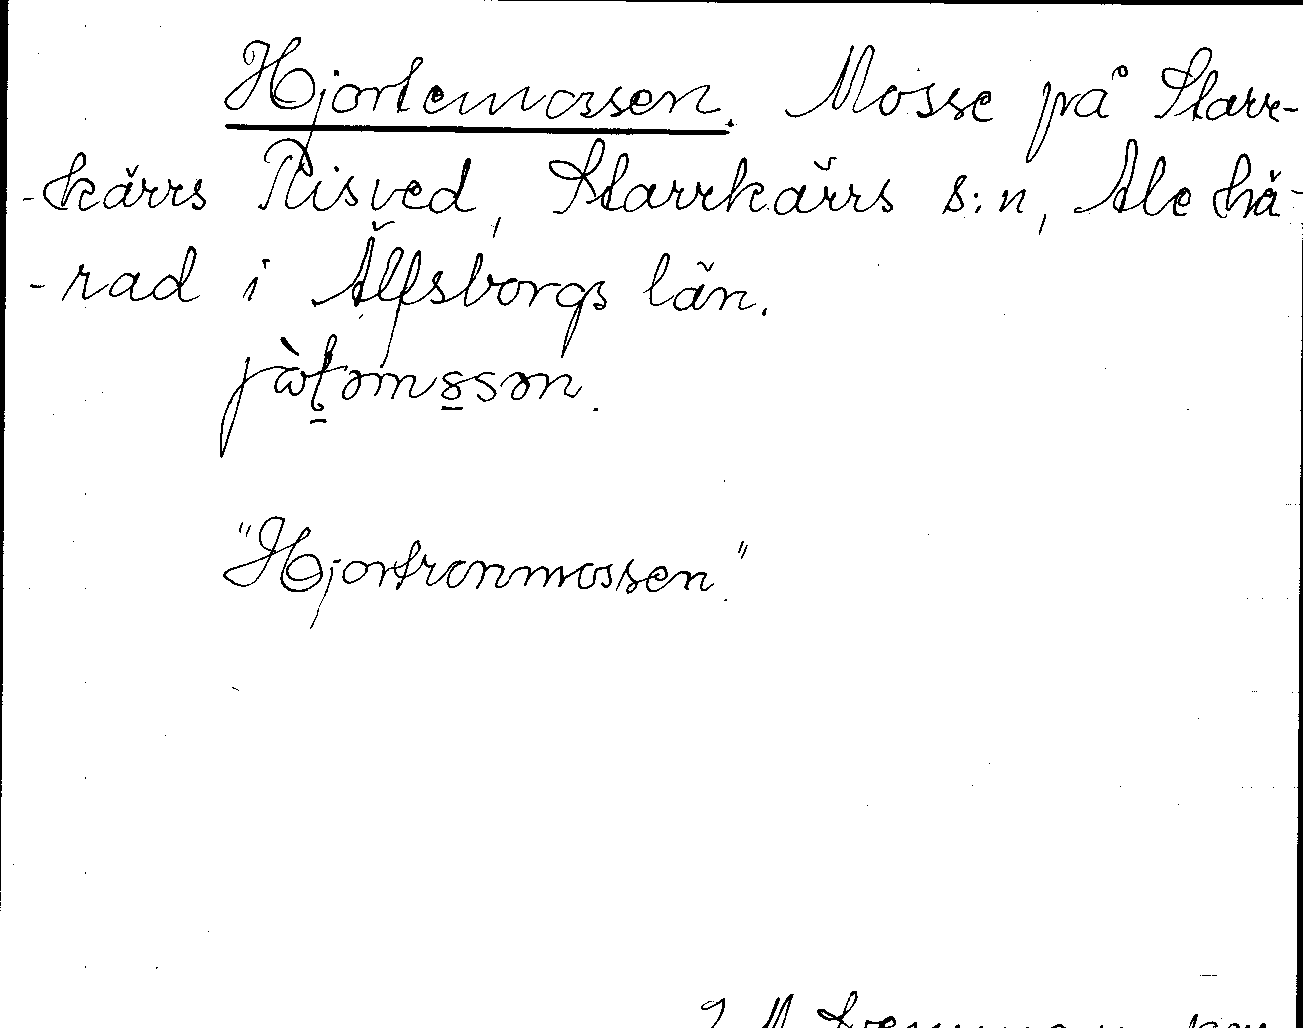 Hjortemossen. Mosse på Starr-
-kärrs Risved, Starrkärrs s:n, Ale hä-
-rad i Älfsborgs län.
"Hjortronmossen."